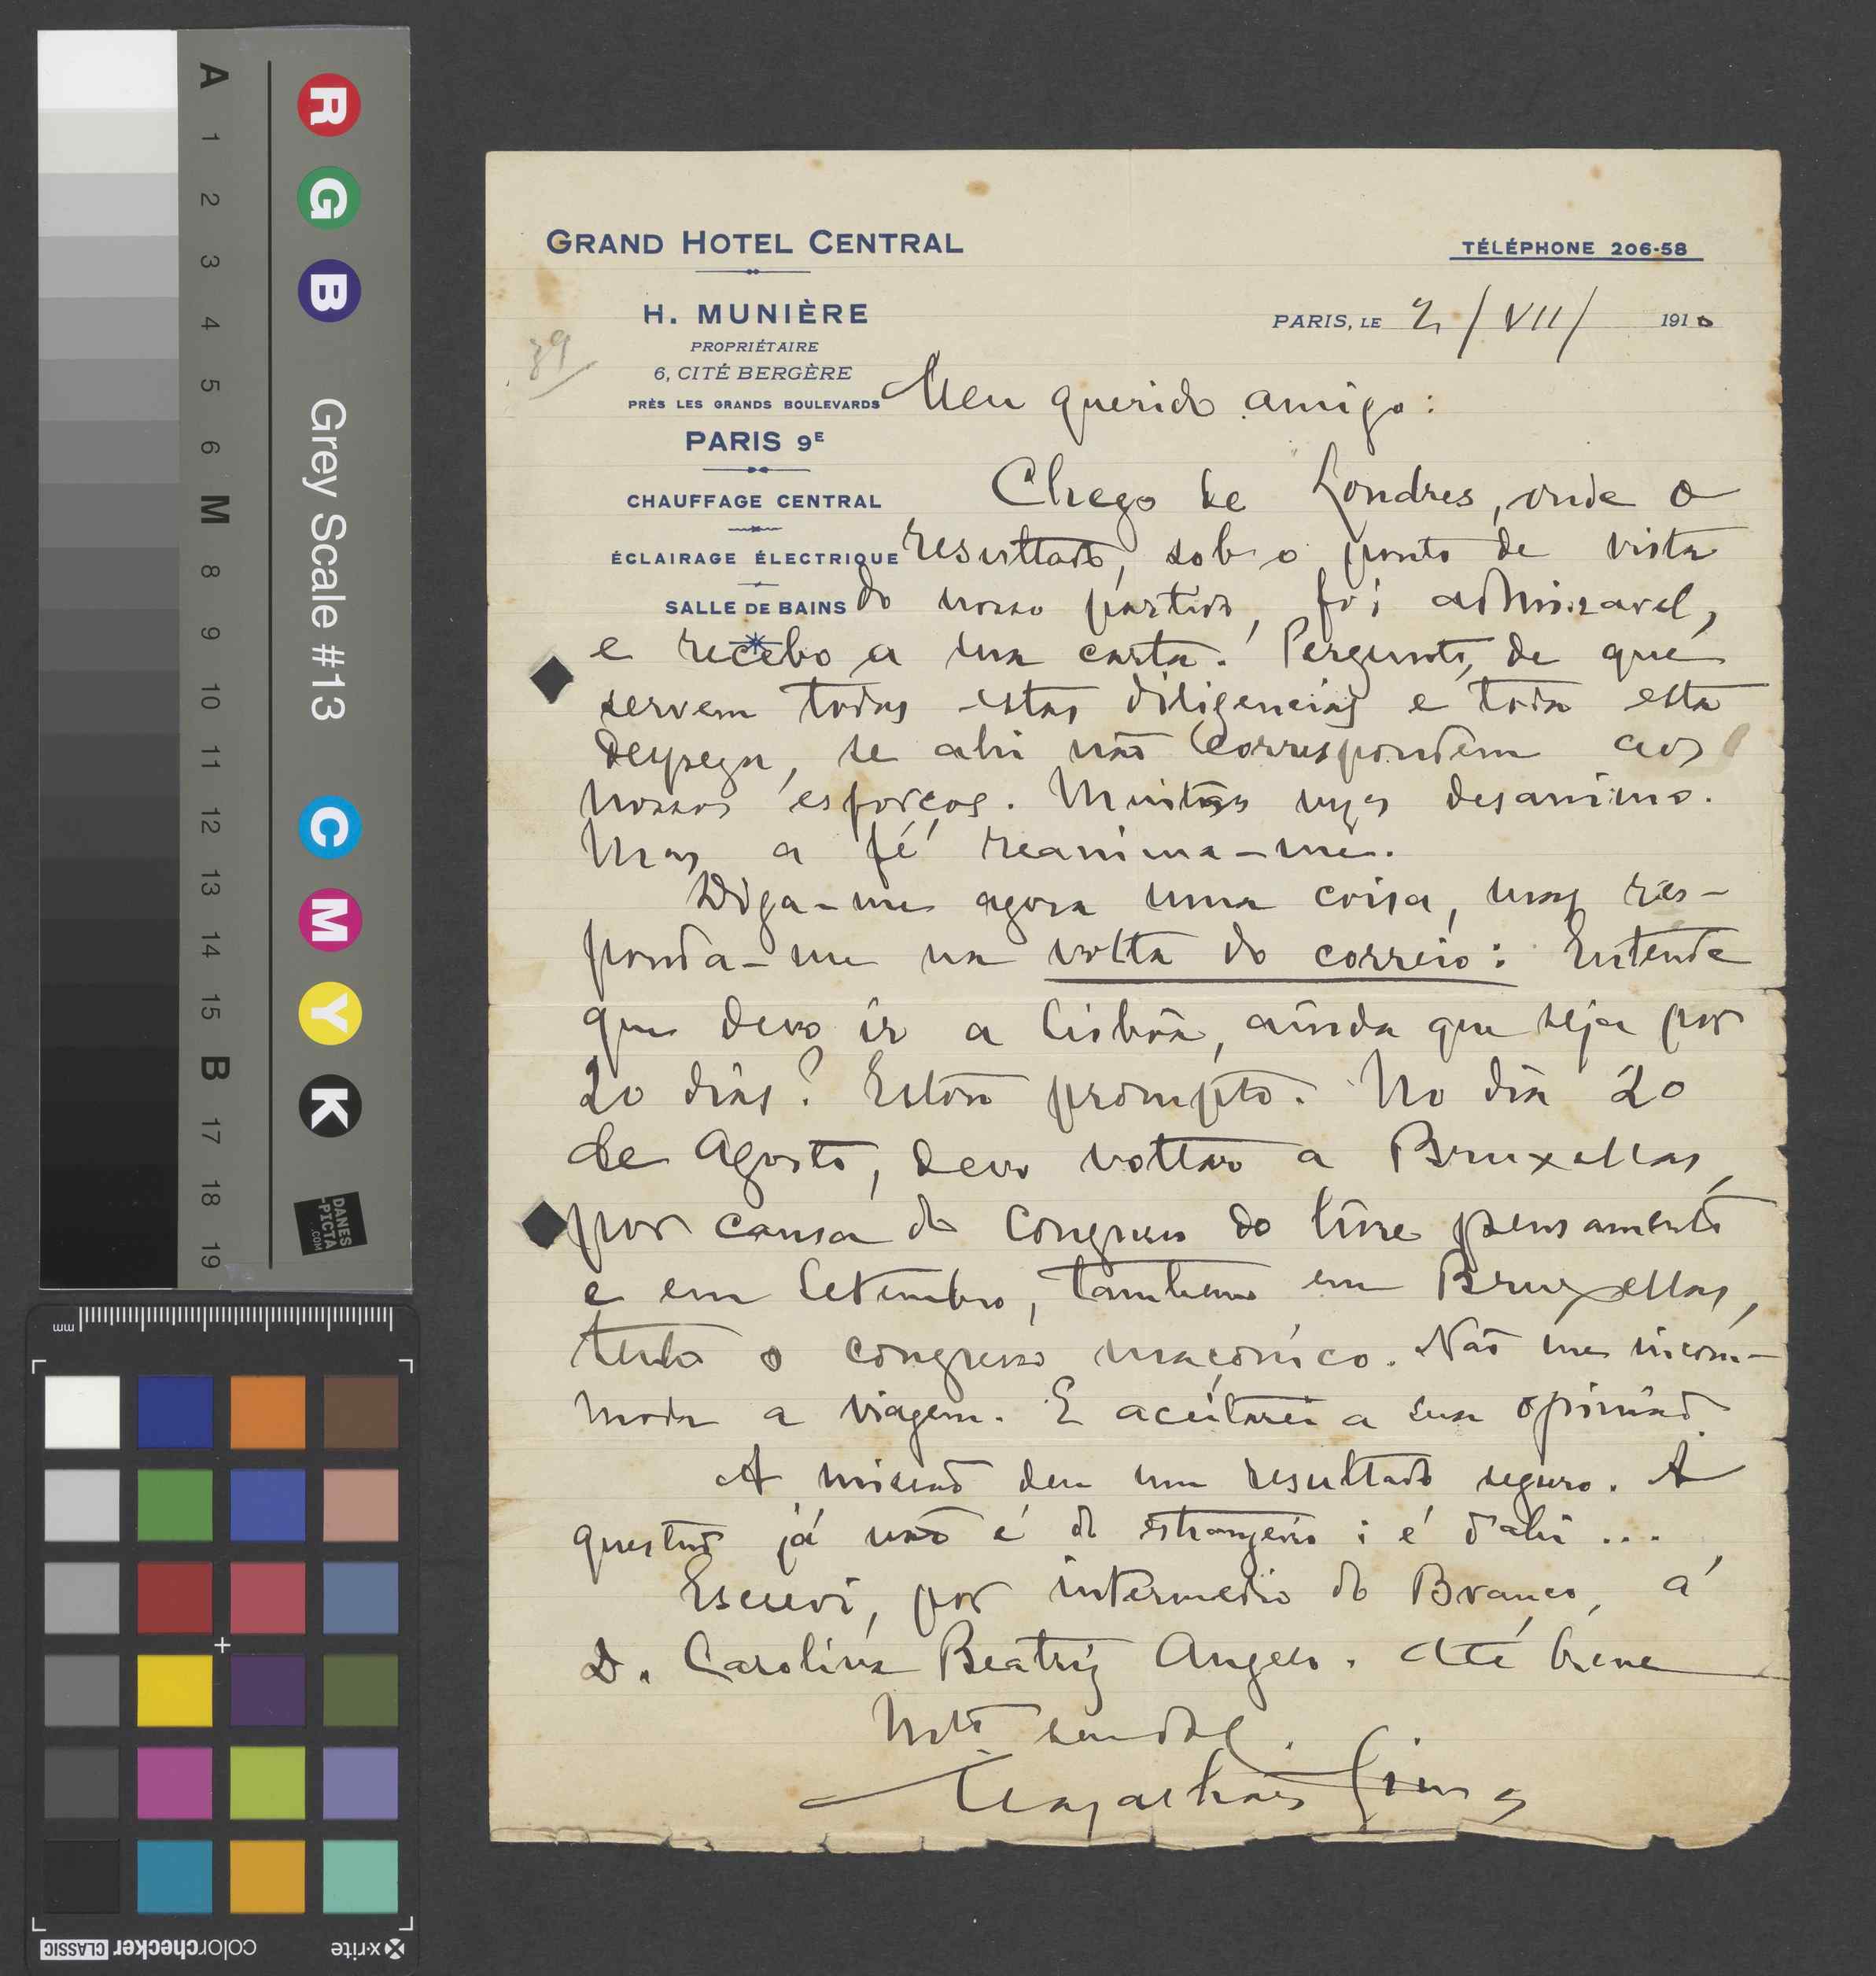 GRAND HOTEL CENTRAL
TÉLÉPHONE 206-58
H. MUNIÈRE
PROPRIÉTAIRE
6, CITÉ BERGÈRE
PRÈS LES GRANDS BOULEVARDS
PARIS 9E
CHAUFFAGE CENTRAL
ÉCLAIRAGE ÉLECTRIQUE
SALLE DE BAINS
39
PARIS, LE 2 / VII / 1910
Meu querido amigo:
Chego de Londres, onde o
resultado, sob o ponto de vista
do nosso partido, foi admiravel,
e recebo a sua carta. Pergunto, de que
servem todas estas diligencias e toda esta
despeza, se ahi não correspondem aos
nossos esforços. Muitas vezes desanimo.
Mas a fé reanima-me.
Diga-me agora uma coisa, mas res-
ponda-me na volta do correio: Entende
que devo ir a Lisbôa, ainda que seja por
20 dias? Estou prompto. No dia 20
de Agosto, devo voltar a Bruxellas,
por causa do Congresso do livre pensamento
e em Setembro, tambem em Bruxellas,
tenho o congresso maçónico. Não me incom-
moda a viagem. E aceitarei a sua opinião.
A missão deu um resultado seguro. A
questão já não é do estrangeiro; é d'ahi ...
Escrevi, por intermedio do Branco, á
D. Carolina Beatriz Angelo. Até breve
Mto saudar.
Magalhães Lima
A 1 2 3 4 5 6 M 8 9 10 11 12 13 14 15 B 17 18 19
R G B Grey Scale #13 C M Y K
DANES
-PICTA
.COM
mm
x-rite colorchecker CLASSIC